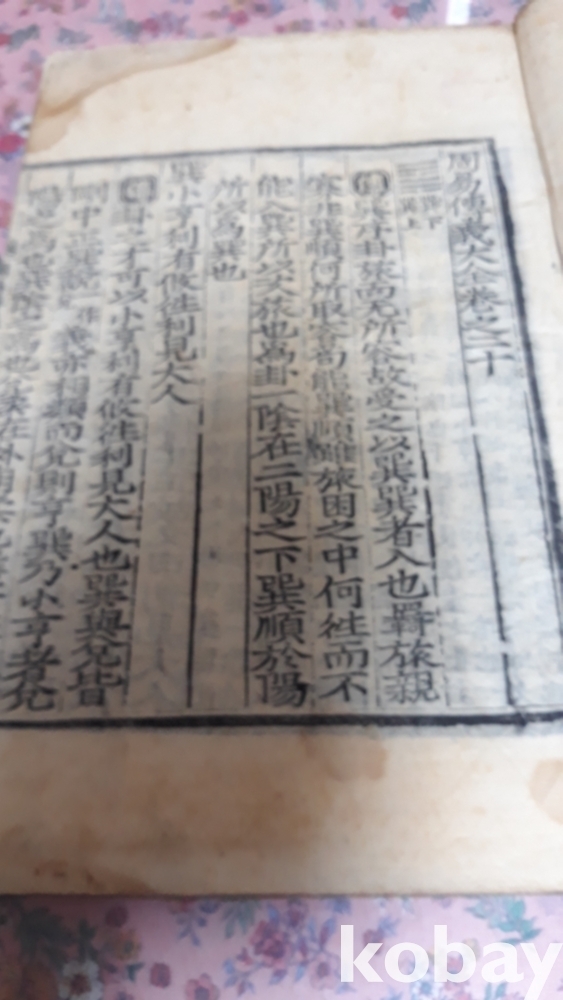 周易傳義大全卷之二十
巽下
巽上
傳巽序卦旅而无所容故受之以巽巽者入也羈旅親
寡非巽順何所取容苟能巽順雖旅困之中何往而不
能入巽所以次旅也爲卦一陰在二陽之下巽順於陽
所以爲巽也
巽小亨利有攸往利見大人
傳卦之才可以小亨利有攸往利見大人也巽與兌皆
剛中正巽說義亦相類而兌則亨巽乃小亨者兌
陽之爲也巽陰之爲也兌柔在外用柔也
kobay